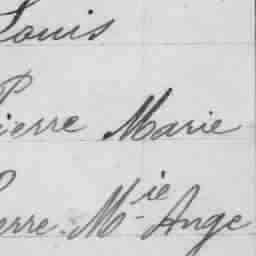 Louis
Pierre Marie
Pierre M.ie Ange